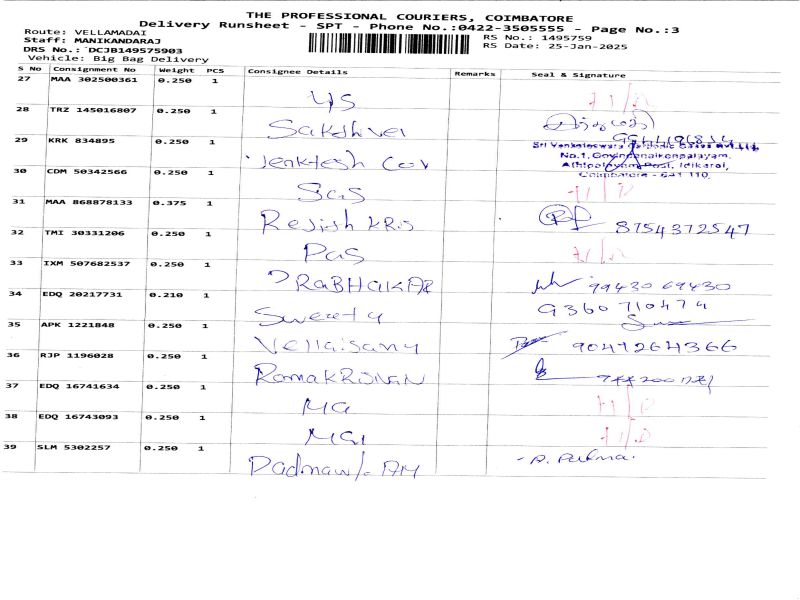 THE PROFESSIONAL COURIERS, COIMBATORE
Delivery Runsheet - SPT - Phone No.:0422-3505555 - Page No.:3
Route: VELLAMADAI
Staff: MANIKANDARAJ
DRS No.: DCJB149575903
Vehicle: Big Bag Delivery
RS No.: 1495759
RS Date: 25-Jan-2025
S No Consignment No Weight PCS Consignee Details Remarks Seal & Signature
27 MAA 302500361 0.250 1
28 TRZ 145016807 0.250 1 Sakthivel
29 KRK 834895 0.250 1
Sri Venkateswara
No.1, Govindanaickenpalayam,
Athipalayam Post, Idikarai,
Coimbatore - 641 110.
30 CDM 50342566 0.250 1 SaS
31 MAA 868878133 0.375 1 Rejith KRS 8754372547
32 TMI 30331206 0.250 1 PaS
33 IXM 507682537 0.250 1 PRaBHakAR 99430 69430
34 EDQ 20217731 0.210 1 Sweety 9360710474
35 APK 1221848 0.250 1 Vellaisamy 9047264366
36 RJP 1196028 0.250 1
37 EDQ 16741634 0.250 1 MG
38 EDQ 16743093 0.250 1
39 SLM 5302257 0.250 1